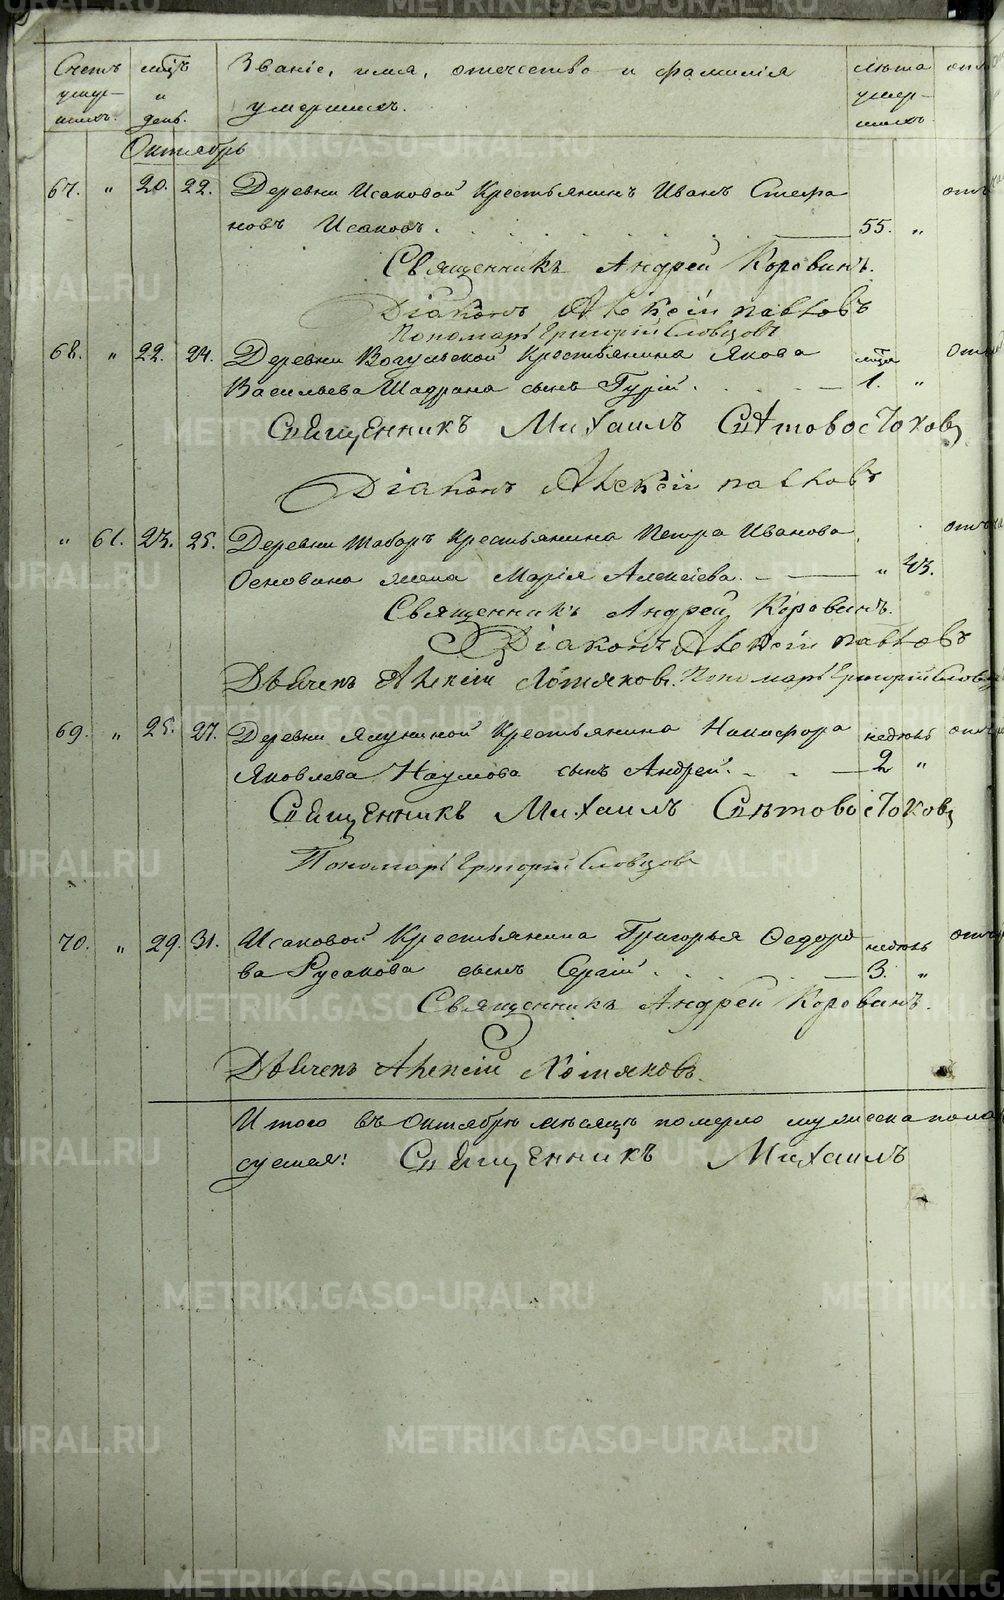 Счетъ умер-шихъ. мцъ и день. Званіе, имя, отечество и фамилія умершихъ. лѣта умер-шихъ
Октябрь
67. " 20. 22. Деревни Исаковой Крестьянинъ Иванъ Стефа
новъ Исаковъ. 55. "
Священникъ Андрей Коровинъ.
Діаконъ Алексій Павловъ
Пономарь Григорій Словцовъ
68. " 22. 24. Деревни Вогульской Крестьянина Якова
Васильева Шадрина сынъ Гурій. 1. "
Священникъ Михаилъ Свѣтовостоковъ
Діаконъ Алексій Павловъ
" 61. 23. 25. Деревни Таборъ Крестьянина Петра Иванова
Основина жена Марія Алексіева. " 43.
Священникъ Андрей Коровинъ.
Діаконъ Алексій Павловъ
Дьячекъ Алексій Хотяковъ. Пономарь Григорій Словцо
69. " 25. 27. Деревни Ялуниной Крестьянина Никифора недѣль
Яковлева Наумова сынъ Андрей. 2 "
Священникъ Михаилъ Свѣтовостоковъ
Пономарь Григорій Словцовъ
70. " 29. 31. Исаковой Крестьянина Григорья Ѳедоро недѣль
ва Русакова сынъ Сергій. 3. "
Священникъ Андрей Коровинъ.
Дьячекъ Алексій Хотяковъ.
Итого въ Октябрѣ мѣсяцѣ померло мужеска пола
Священникъ Михаилъ
METRIKI.GASO-URAL.RU